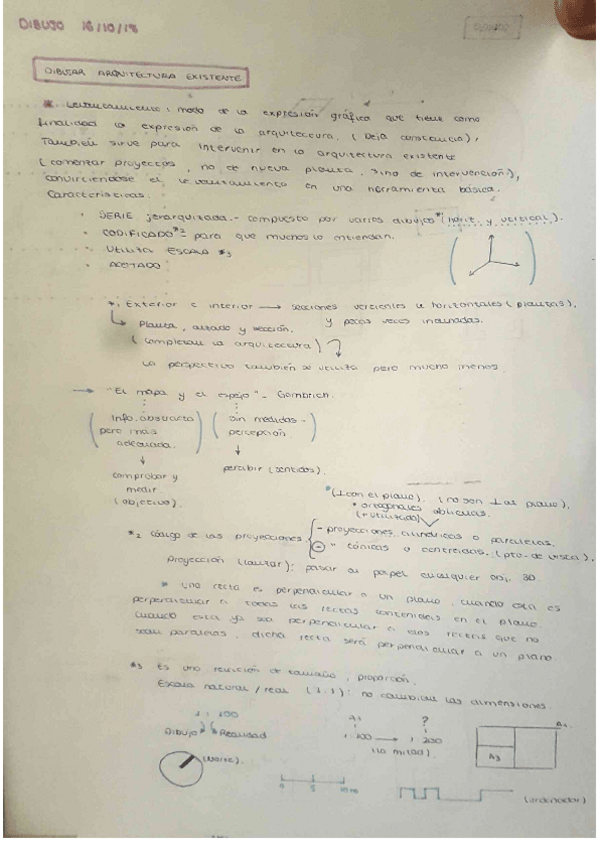 DIBUJO 16/10/18
DIBUJAR ARQUITECTURA EXISTENTE
* Levantamiento: modo de la expresión gráfica que tiene como
finalidad la expresión de la arquitectura. (Deja constancia),
También sirve para intervenir en la arquitectura existente
(comenzar proyectos, no de nueva planta, sino de intervención),
convirtiéndose el levantamiento en una herramienta básica.
Características.
· SERIE jerarquizada.- compuesto por varios dibujos *1 (horit. y vertical).
· CODIFICADO *2 - para que muchos lo entiendan.
· Utiliza ESCALA *3
· ACOTADO
*1 Exterior e interior → secciones verticales u horizontales (plantas),
y pocas veces inclinadas.
Planta, alzado y sección.
(completan la arquitectura)
La perspectiva también se utiliza pero mucho menos.
→ "El mapa y el espejo" - Gombrich.
(Info. abstracta pero más adecuada.) (Sin medidas - percepción)
comprobar y medir. (objetivo).
percibir (sentidos).
*(⊥ con el plano). (no son ⊥ al plano),
* ortogonales oblicuas.
(+ utilizada)
*2 Código de las proyecciones - proyecciones cilíndricas o paralelas,
- " cónicas o centradas. (pto. de vista).
Proyección (lanzar): pasar al papel cualquier obj. 3D
* Una recta es perpendicular a un plano, cuando esta es
perpendicular a todas las rectas contenidas en el plano.
Cuando esta ya sea perpendicular a dos rectas que no
sean paralelas, dicha recta será perpendicular a un plano
*3 Es una relación de tamaño, proporción.
Escala natural / real (1:1): no cambian las dimensiones.
1 : 100
Dibujo Realidad
A1 ?
1:100 → 1:200
(la mitad).
A1
A3
(Norte).
0 5 10 m
(ordenador)